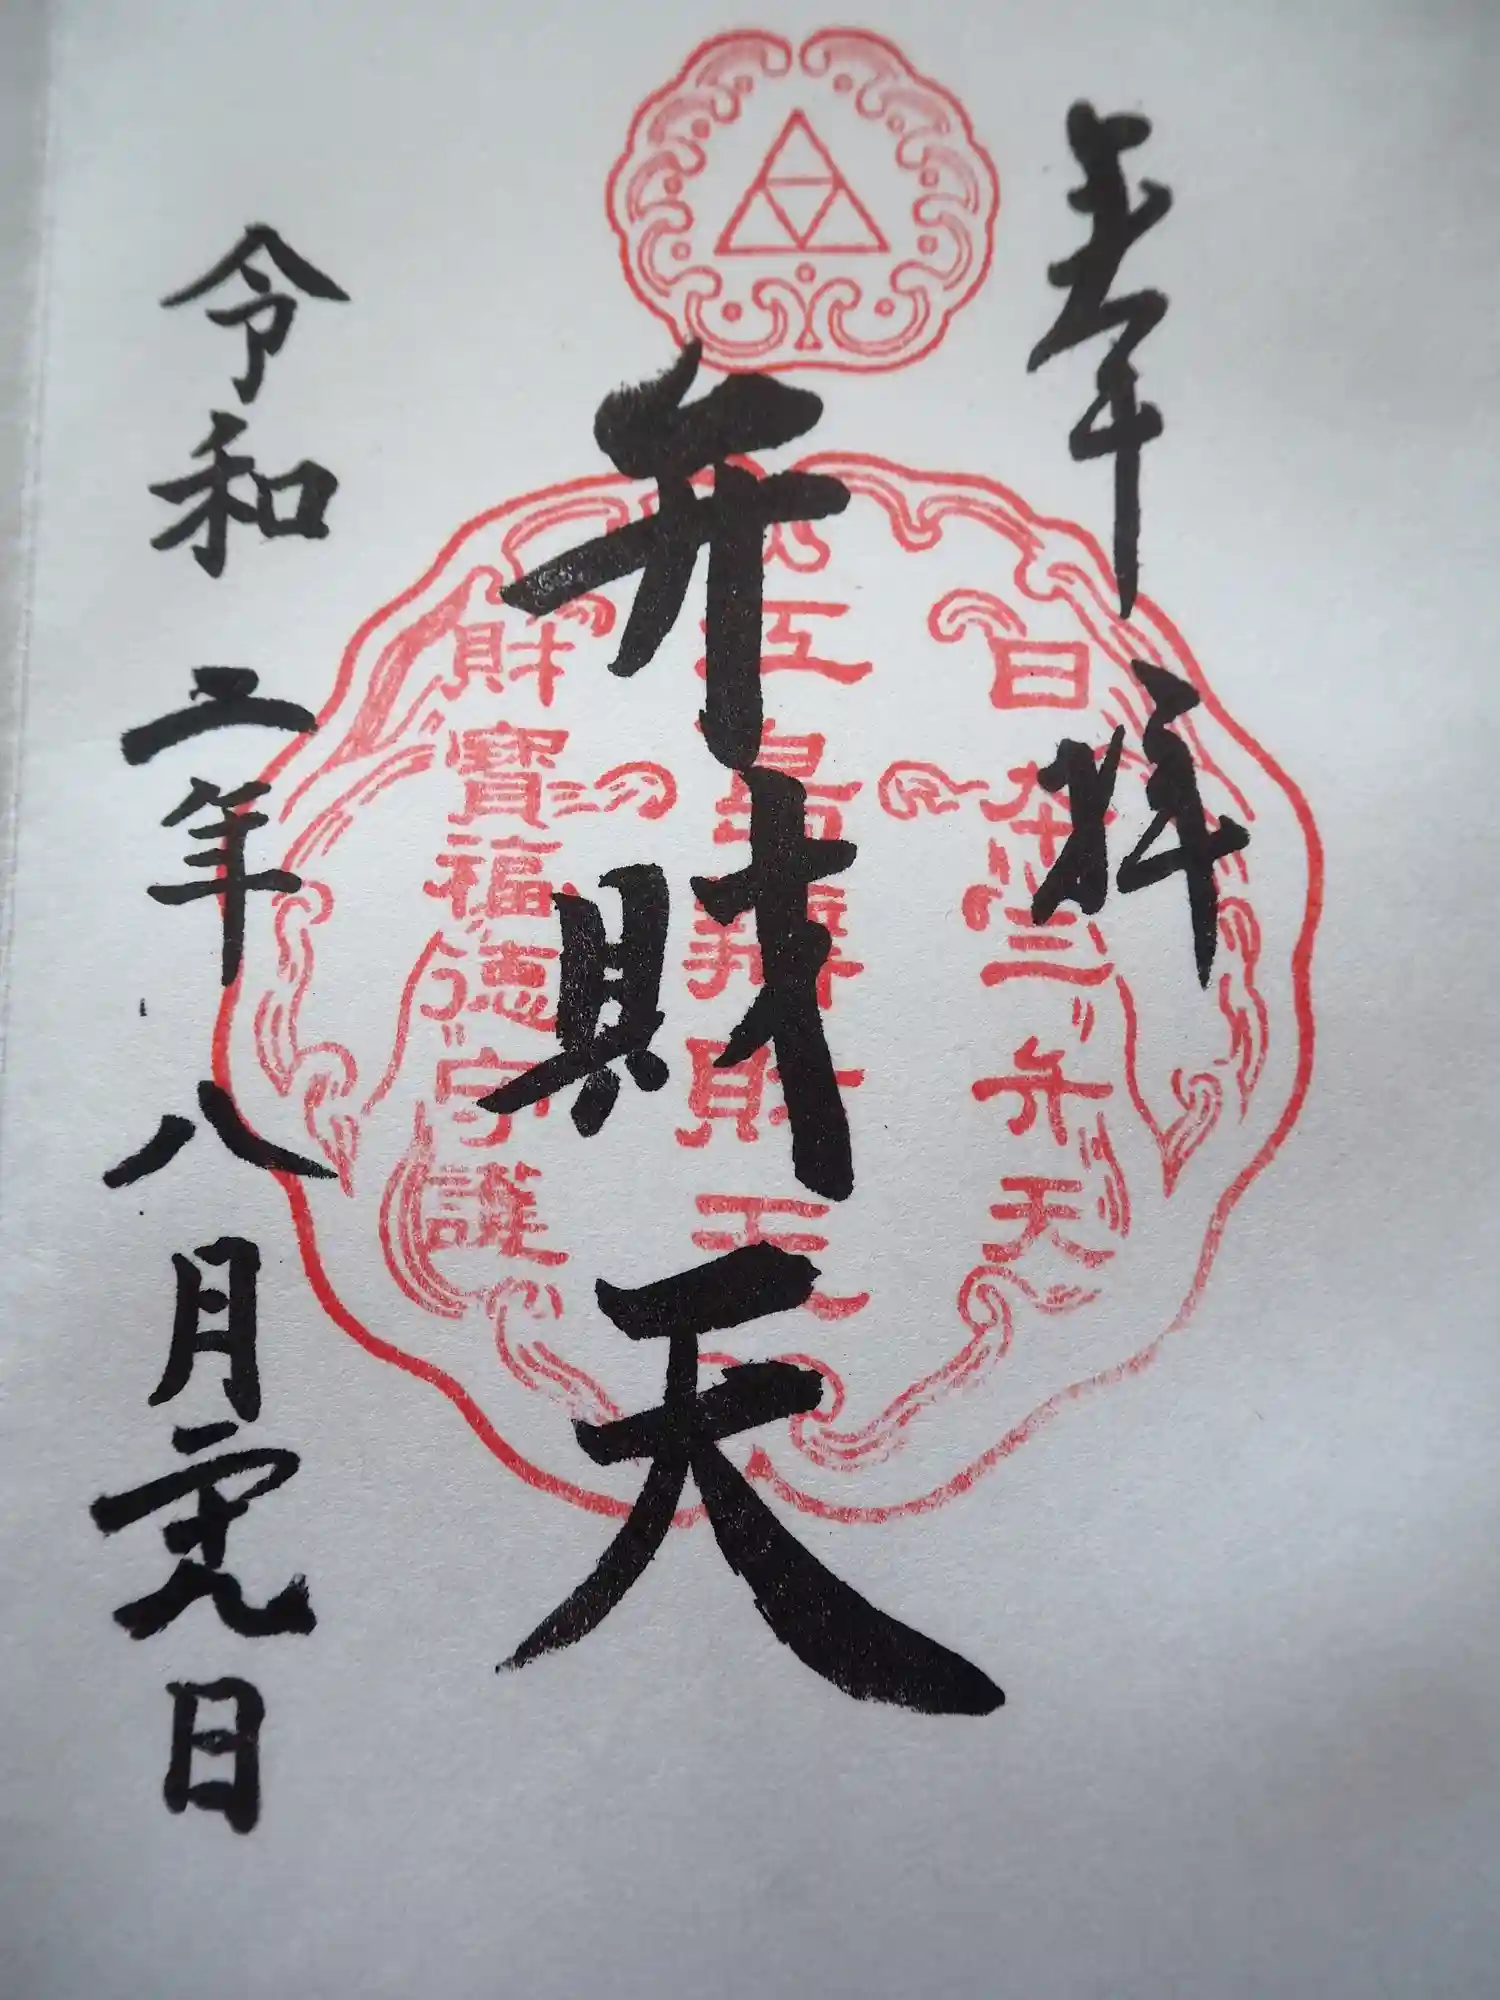 奉拝
日本三弁天
江島辨財天
財寶福徳守護
弁財天
令和二年八月六日